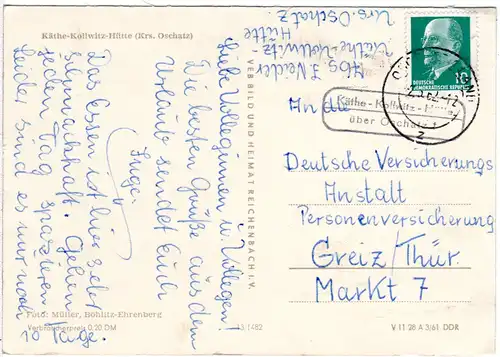 Käthe-Kollwitz-Hütte (Krs. Oschatz)
Abs. I. Neder
Käthe-Kollwitz-
Hütte
Krs. Oschatz.
Liebe Kolleginnen u. Kollegen!
Die besten Grüße aus dem
Urlaub sendet Euch
Inge.
Das Essen ist hier sehr
schmackhaft. Gehen
jeden Tag spazieren.
Leider sind es nur noch
10 Tage.
Foto: Müller, Böhlitz-Ehrenberg
Verbraucherpreis 0.20 DM
VEB BILD UND HEIMAT REICHENBACH I. V.
13/1482
V 11 28 A 3/61 DDR
10
DEUTSCHE
DEMOKRATISCHE REPUBLIK
Käthe-Kollwitz-
über Oschatz 1
An die
Deutsche Versicherungs
Anstalt
Personenversicherung
Greiz/Thür.
Markt 7